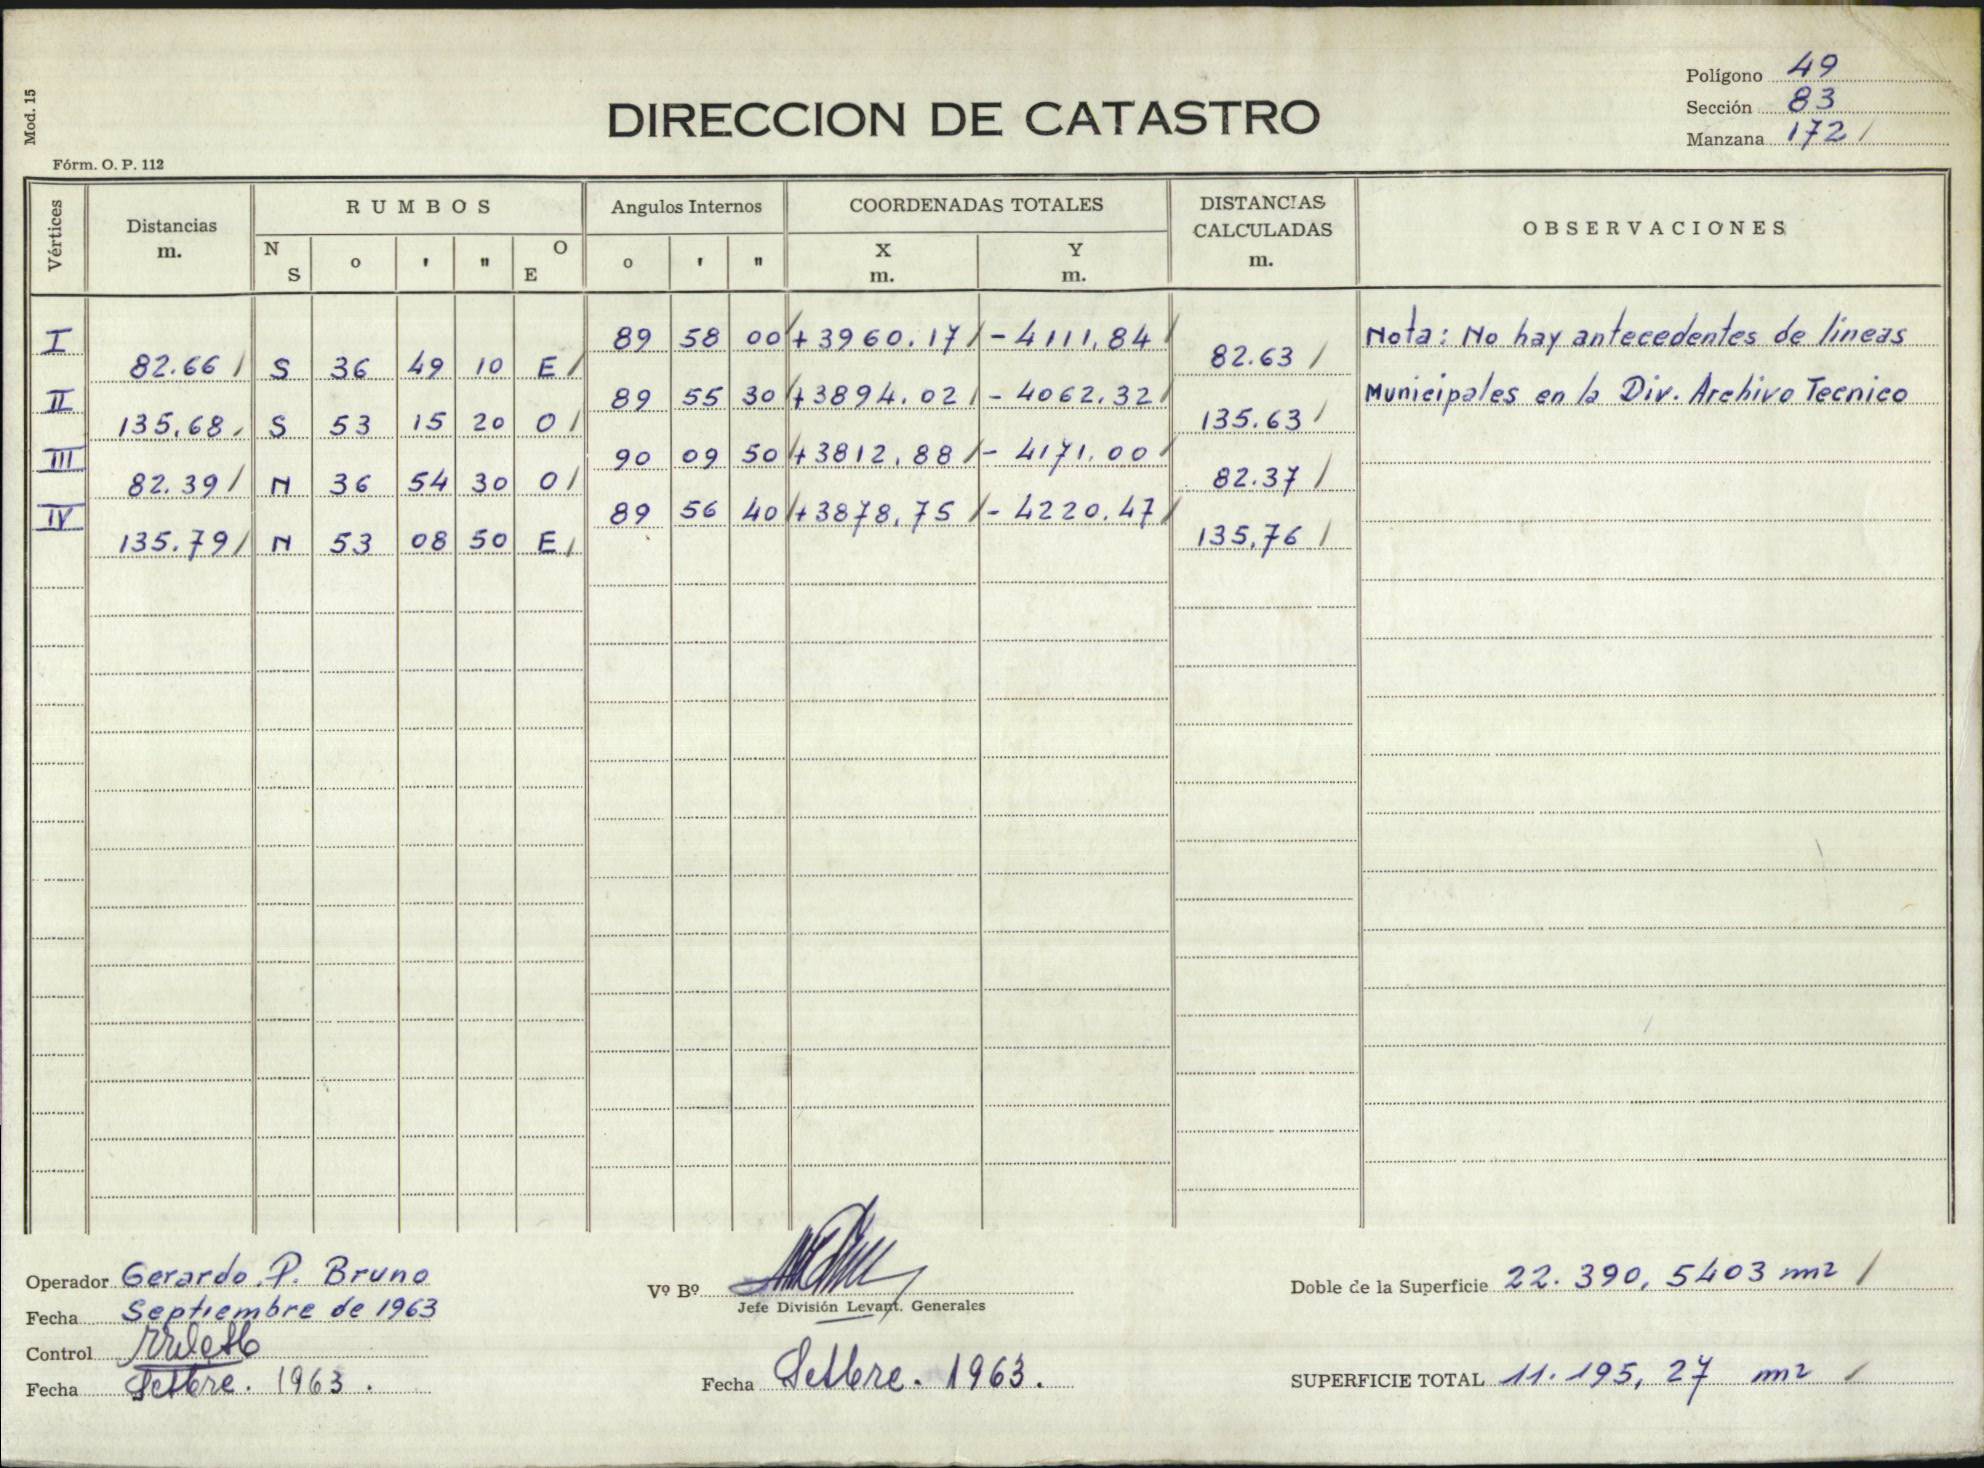 Mod. 15
Fórm. O. P. 112
DIRECCION DE CATASTRO
Polígono 49
Sección 83
Manzana 172 /
Vértices
Distancias
m.
RUMBOS
N S
o
'
"
O E
Angulos Internos
o ' "
COORDENADAS TOTALES
X
m.
Y
m.
DISTANCIAS
CALCULADAS
m.
OBSERVACIONES
I 89 58 00 / + 3960.17 / - 4111,84 / Nota: No hay antecedentes de lineas
82.66 / S 36 49 10 E / 82.63 /
II 89 55 30 / + 3894.02 / - 4062.32 / Municipales en la Div. Archivo Tecnico
135,68 / S 53 15 20 O / 135.63 /
III 90 09 50 / + 3812,88 / - 4171.00 /
82.39 / N 36 54 30 O / 82.37 /
IV 89 56 40 / + 3878,75 / - 4220.47 /
135.79 / N 53 08 50 E / 135,76 /
Operador Gerardo P. Bruno
Fecha Septiembre de 1963
Control
Fecha Setbre. 1963.
Vº Bº
Jefe División Levant. Generales
Fecha Setbre. 1963.
Doble de la Superficie 22.390,5403 m2 /
SUPERFICIE TOTAL 11.195,27 m2 /